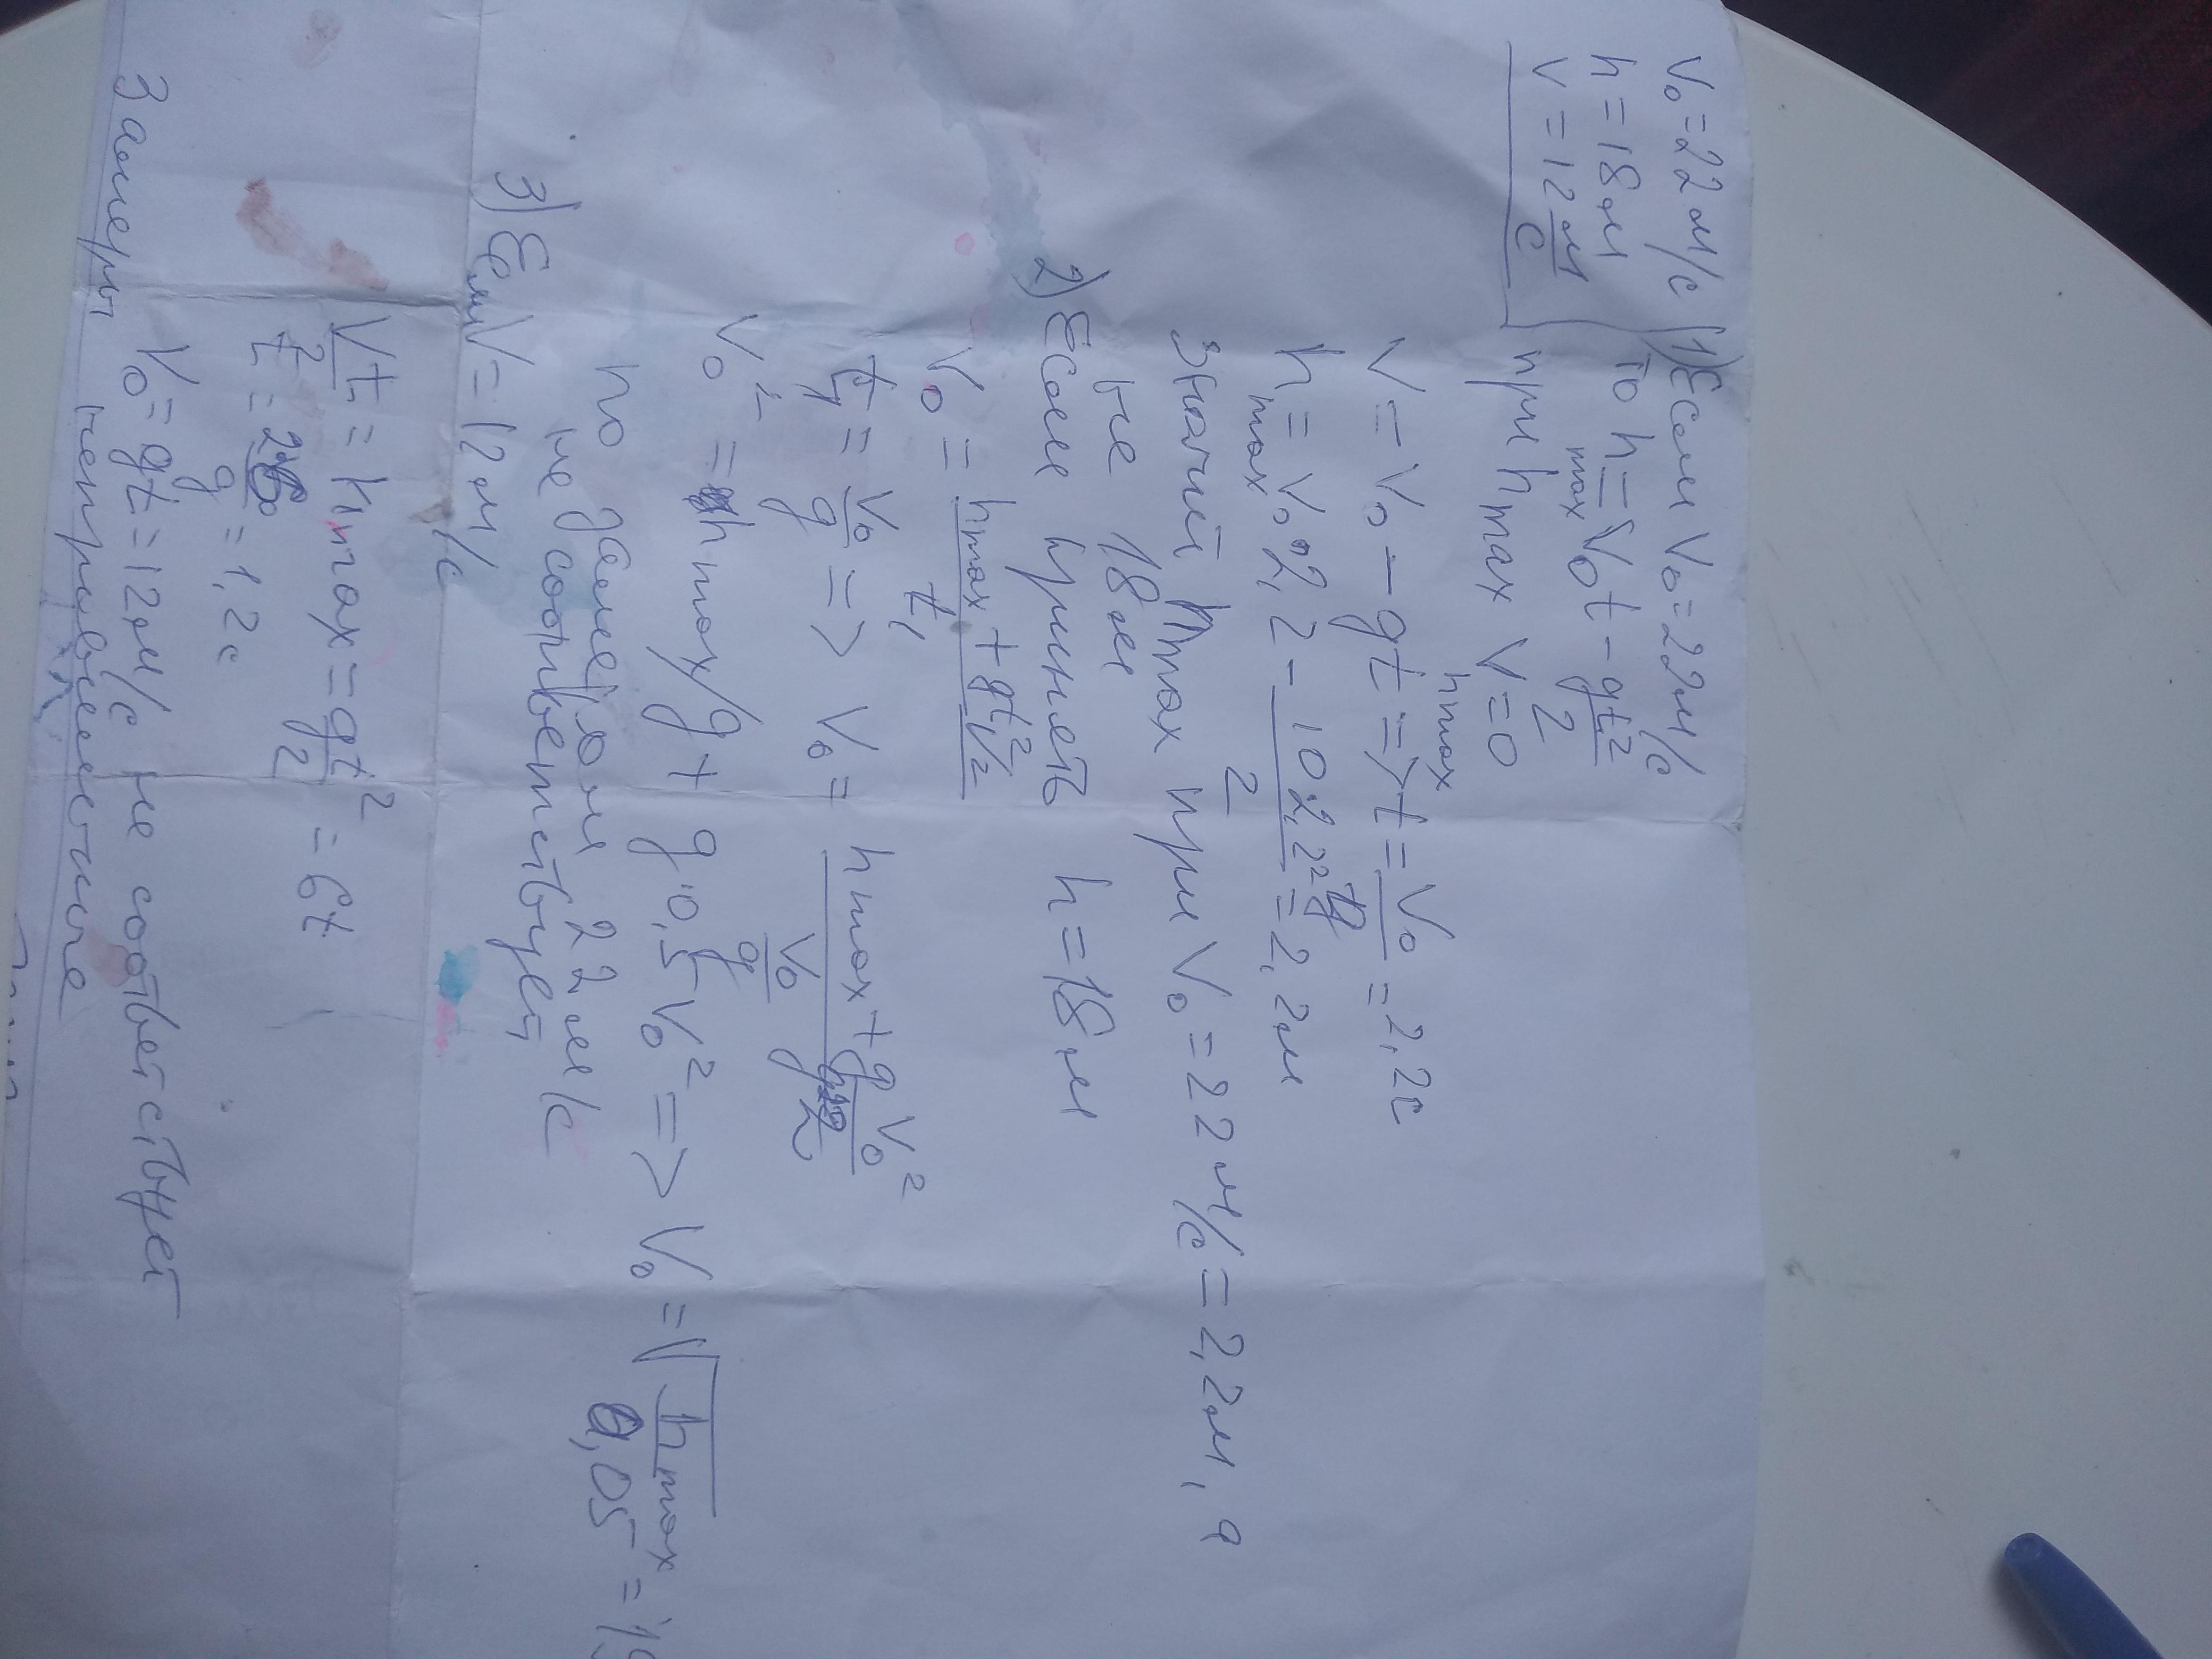 V₀ = 22 м/с
h = 18 м
V = 12 м/с
1) Если V₀ = 22 м/с
то h max = V₀t - gt²/2
при h max V = 0
h max
V = V₀ - gt => t = V₀/g = 2,2 с
h max = V₀ 2,2 - 10 2,2²/2 = 2,2 м
значит h max при V₀ = 22 м/с = 2,2 м, а
не 18 м
2) Если принять h = 18 м
V₀ = (h max + gt²/2)/t₁
t₁ = V₀/g => V₀ = (h max + g V₀²/2)/(V₀/g)
V₀² = h max/g + g·0,5 V₀² => V₀ = √(h max/0,05 = 19
но замер 22 м/с
не соответствует
3) Если V = 12 м/с
Vt/2 = h max = gt²/2 = 6t
t = 2·6/g = 1,2 с
V₀ = gt = 12 м/с не соответствует
Замеры неправильные